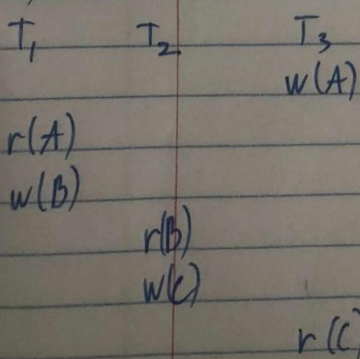 T₁ T₂ T₃
w(A)
r(A)
w(B)
r(B)
w(C)
r(C)